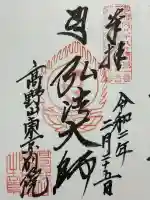 奉拝
令和二年
二月二十五日
弘法大師
高野山東京別院